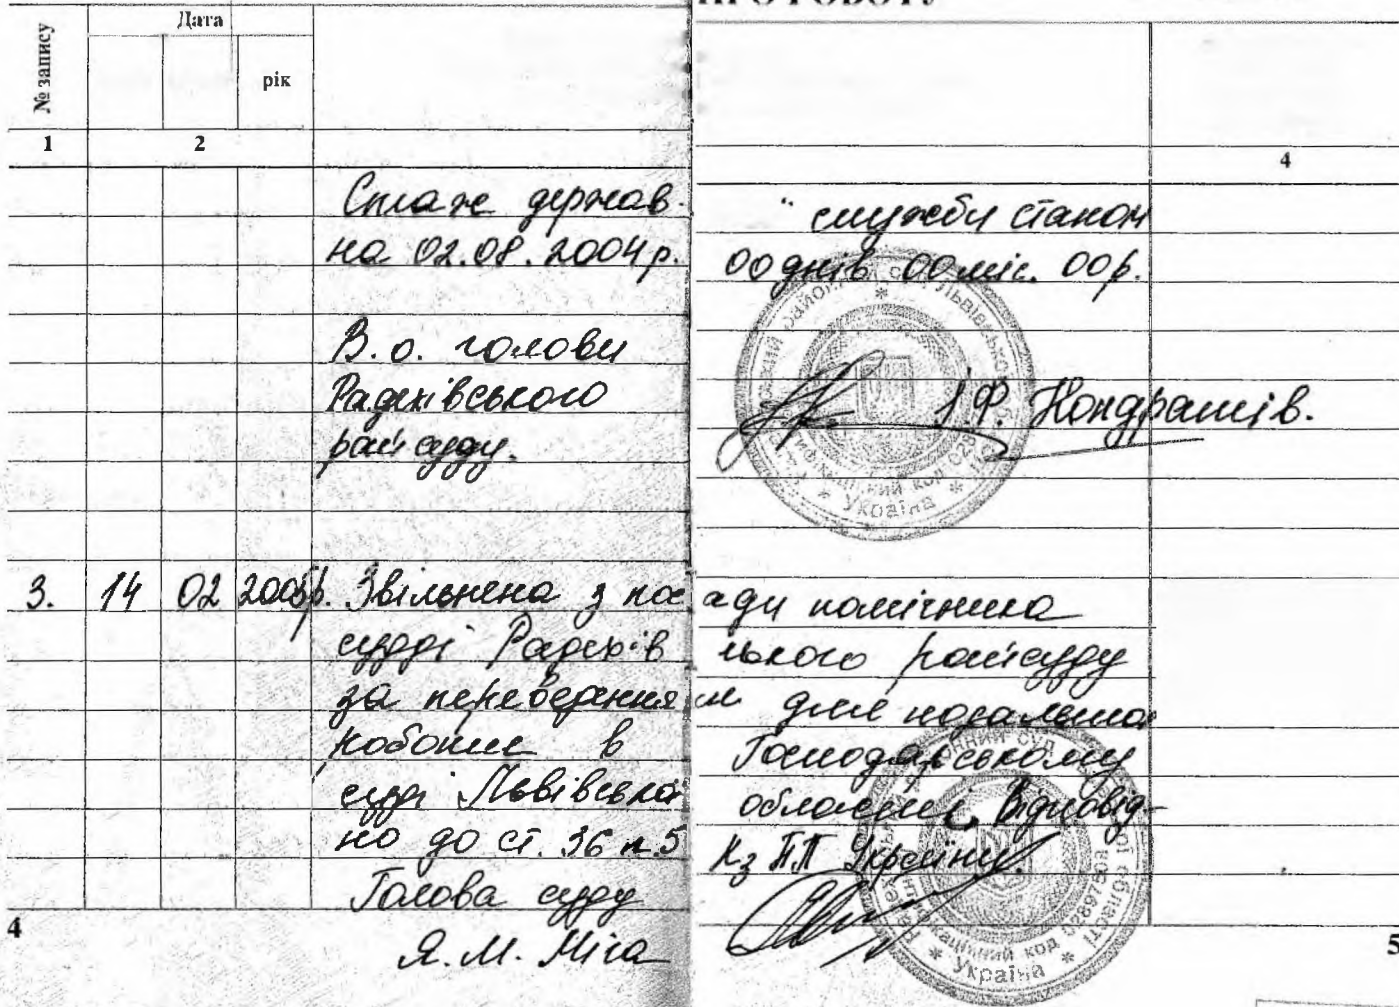 ПРО РОБОТУ
№ запису
Дата
рік
1 2 4
Стаж держав. служби станом
на 02.08.2004р. 00 днів 00 міс. 00р.
В.о. голови
Радехівського
райсуду. Кондратів.
3. 14 02 2005р. Звільнена з посади помічника
судді Радехівського райсуду
за переведенням для подальшої
роботи в Господарському
суді Львівської області, відповід-
но до ст. 36 п.5 КзПП України.
Голова суду
Я.М. Міга
Україна
Україна
4 5